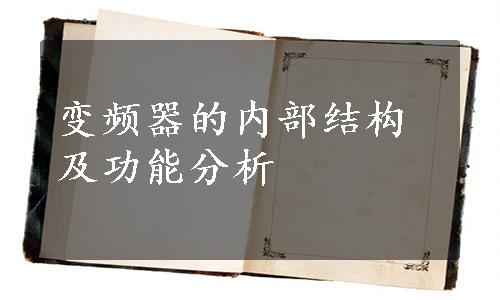 变频器的内部结构
及功能分析